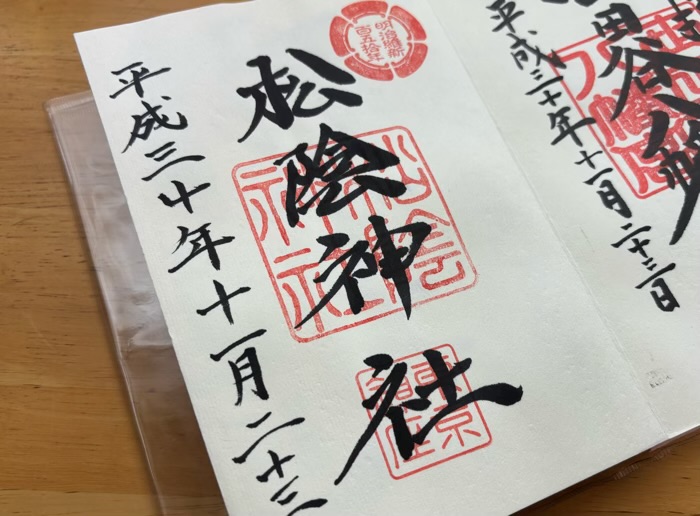 田谷八幡
平成三十年十一月二十三日
明治維新
百五拾年
松陰神社
松陰
神社
東京
平成三十年十一月二十三